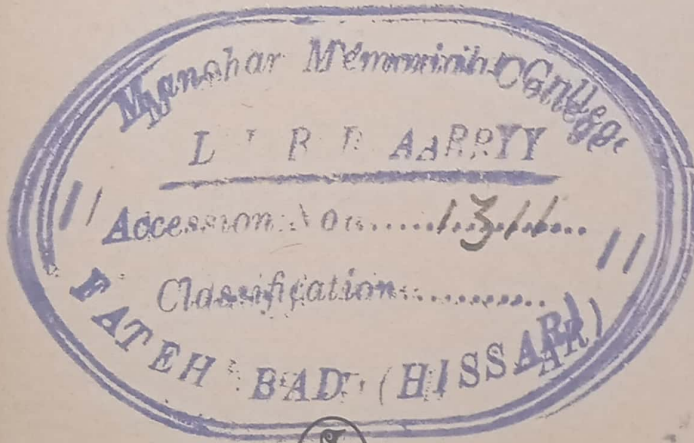 Manohar Memorial College
LIBRARY
Accession No. 1311
Classification
FATEHABAD (HISSAR)